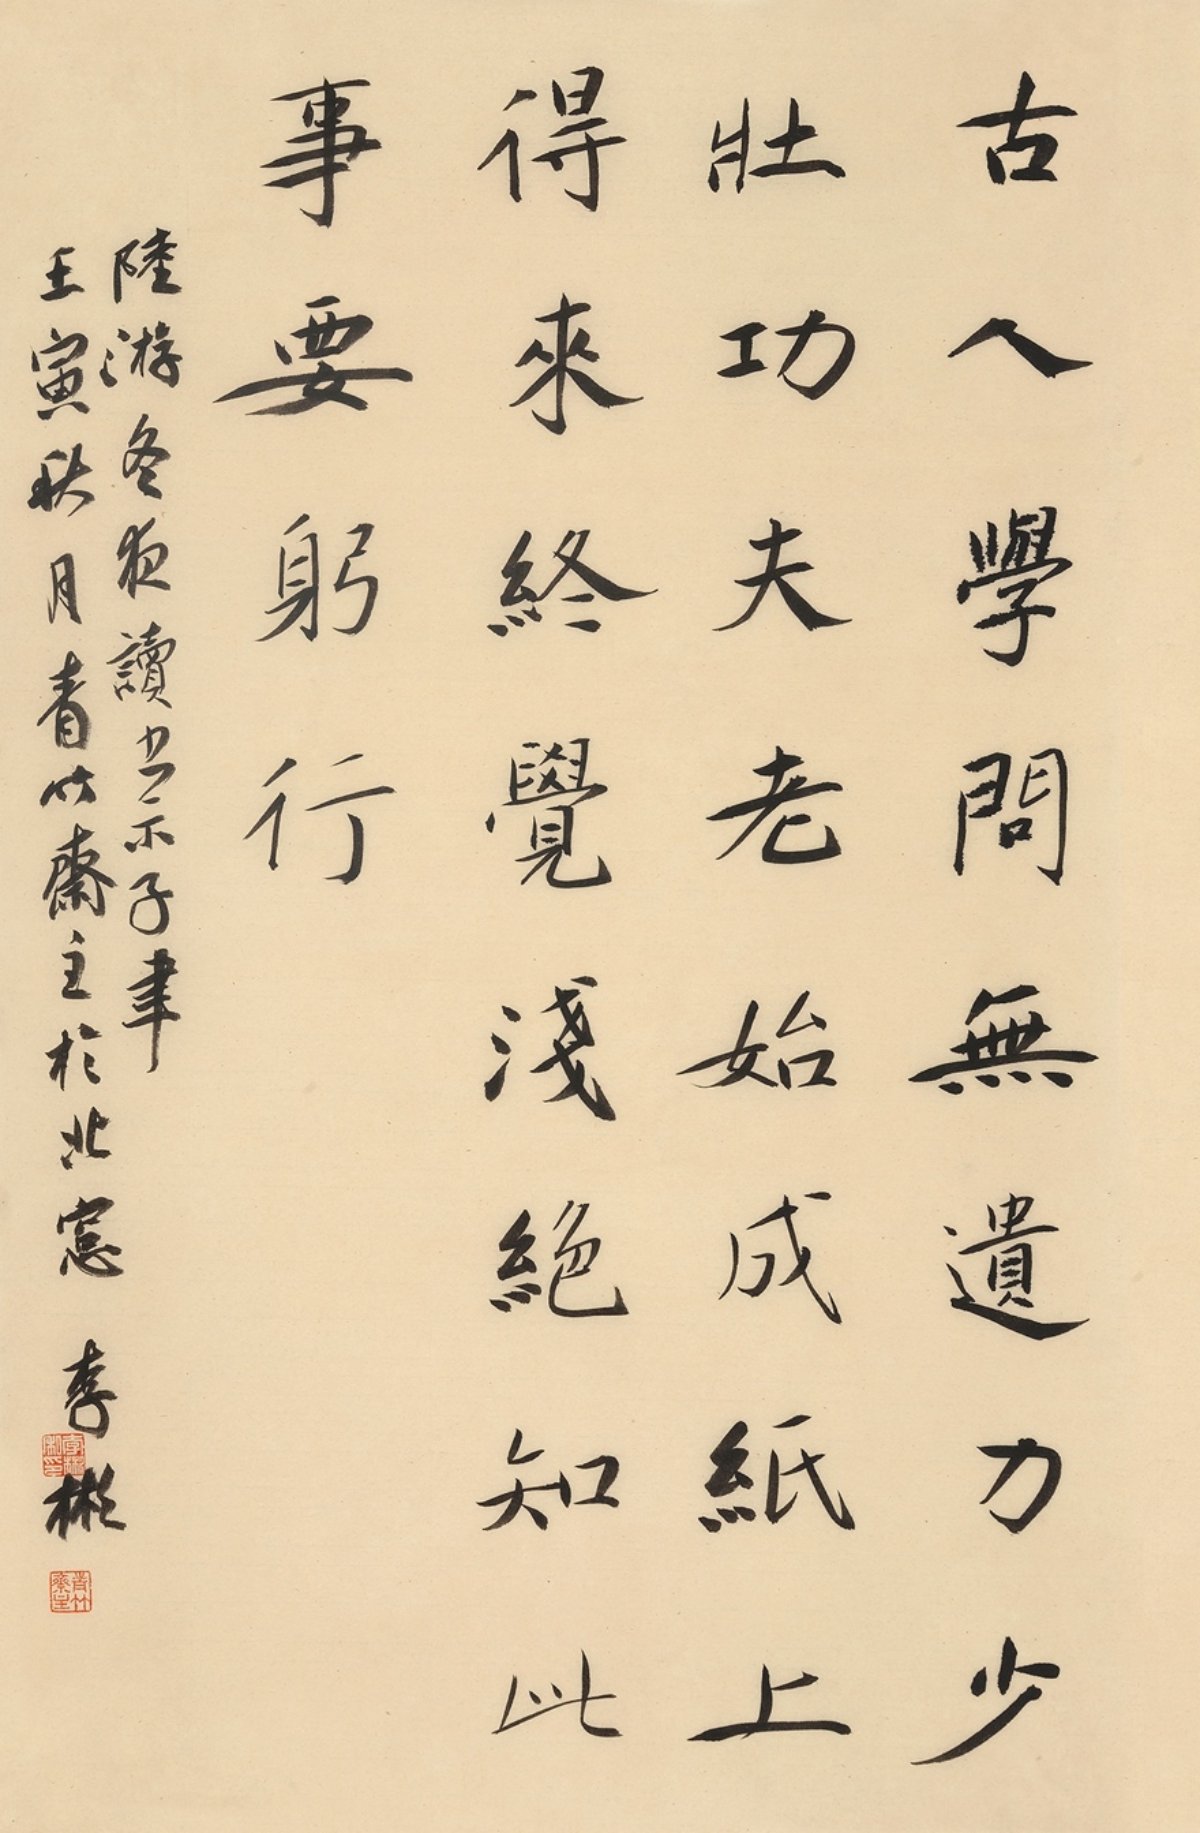 古人學問無遺力少
壯功夫老始成紙上
得來終覺淺絕知此
事要躬行
陸游冬夜讀书示子聿
壬寅秋月青竹齋主於北窓 李彬